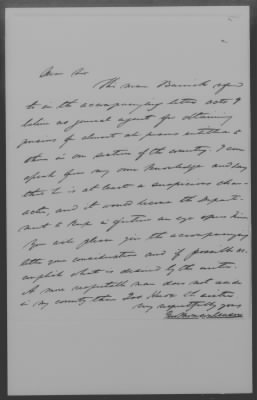 Dear Sir
The man Barrick refer
to in the accompanying letter acts I
believe as general agent for obtaining
pensions for almost all persons entitled to
them in our section of the country. I can
speak from my own knowledge and say
that he is at least a suspicious char-
acter, and it would become the Depart-
ment to keep in future an eye upon him
You will please give the accompanying
letter your consideration and if possible ac-
complish what is desired by the writer.
A more respectable man does not reside
in my county than
very respectfully yours